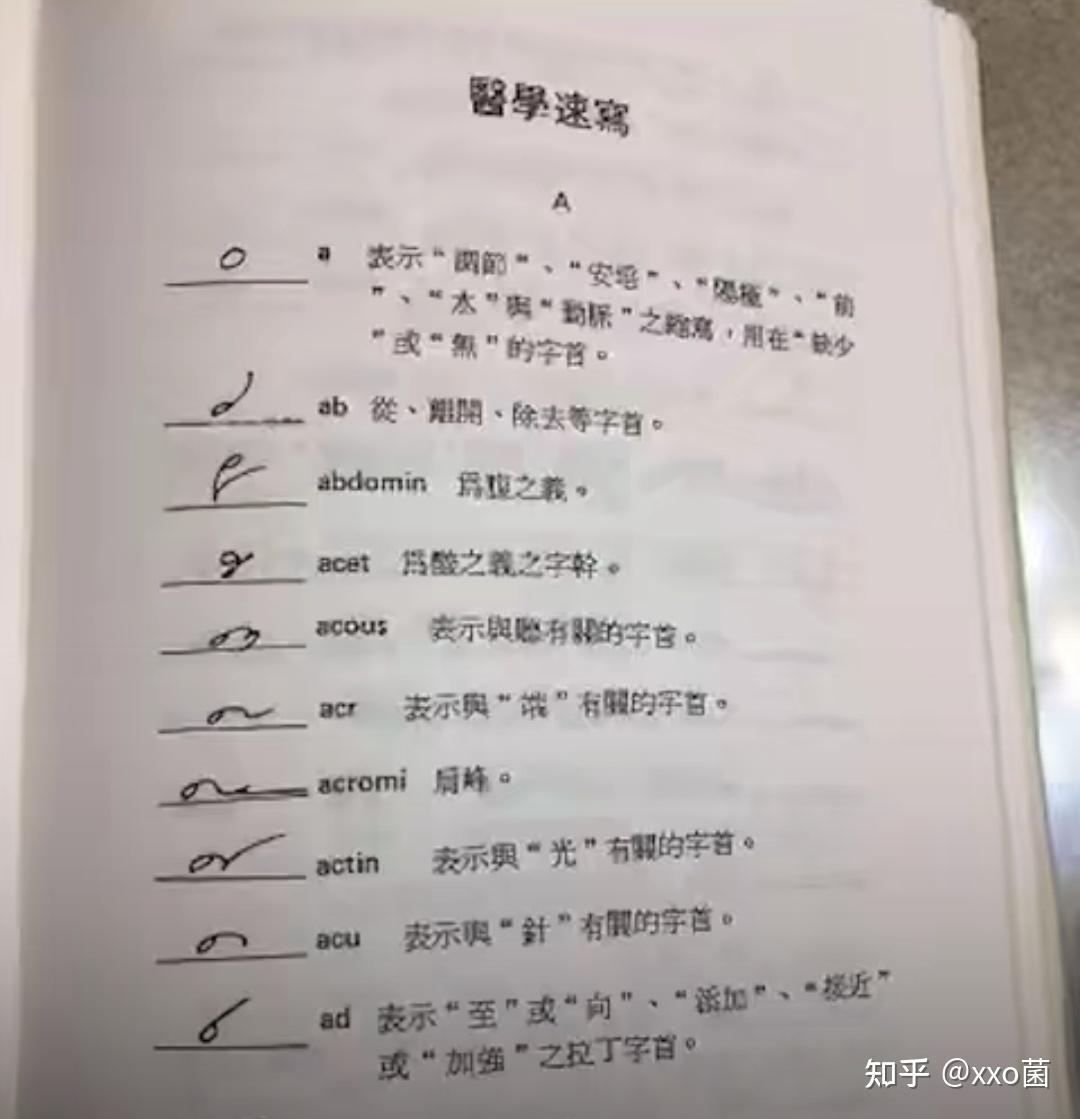 醫學速寫
A
a 表示“調節”、“安培”、“陽極”、“前
”、“太”與“動脈”之縮寫，用在“缺少
”或“無”的字首。
ab 從、離開、除去等字首。
abdomin 爲腹之義。
acet 爲酸之義之字幹。
acous 表示與聽有關的字首。
acr 表示與“端”有關的字首。
acromi 肩峰。
actin 表示與“光”有關的字首。
acu 表示與“針”有關的字首。
ad 表示“至”或“向”、“添加”、“接近”
或“加強”之拉丁字首。
知乎 @xxo菌